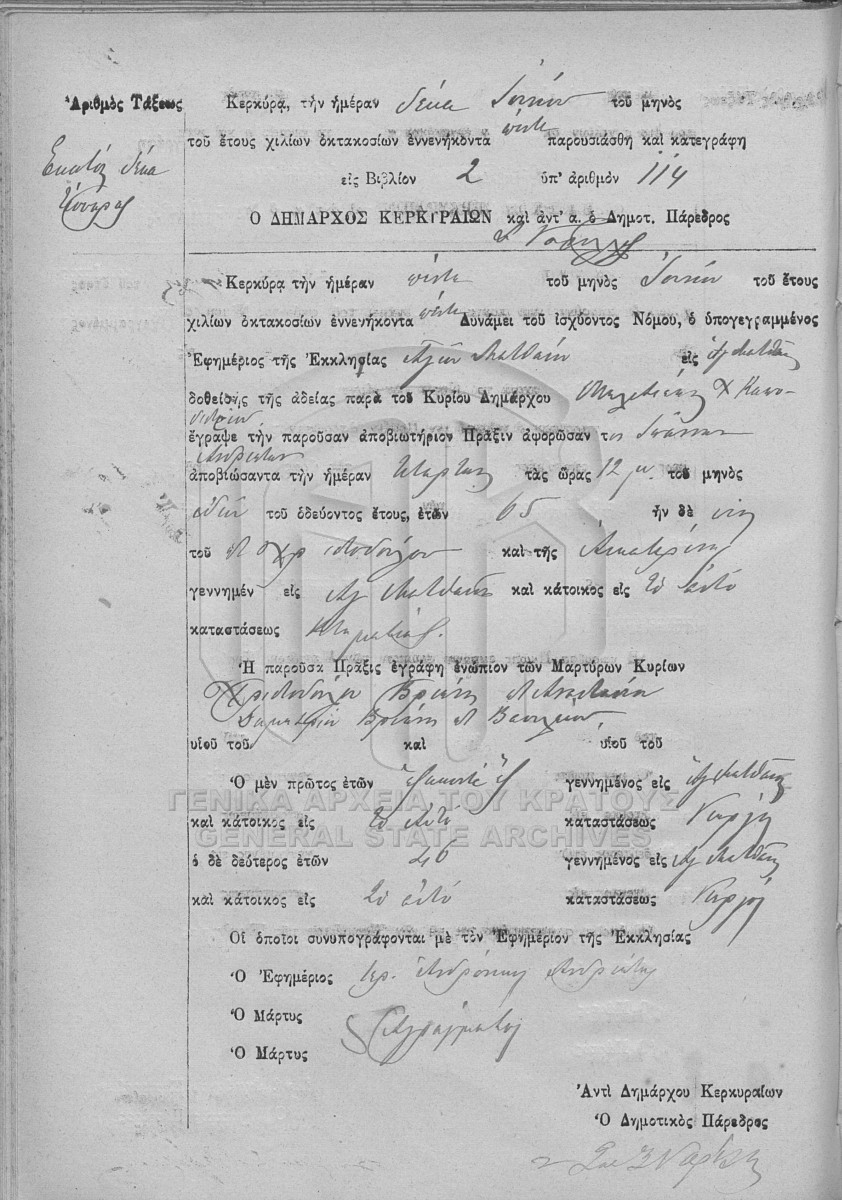 Ἀριθμὸς Τάξεως
Ἑκατὸν δέκα
τέσσαρα
Κερκύρα, τὴν ἡμέραν δέκα Ἰουνίου τοῦ μηνὸς
τοῦ ἔτους χιλίων ὀκτακοσίων ἐννενήκοντα πέντε παρουσιάσθη καὶ κατεγράφη
εἰς Βιβλίον 2 ὑπ' ἀριθμὸν 114
Ο ΔΗΜΑΡΧΟΣ ΚΕΡΚΥΡΑΙΩΝ καὶ ἀντ' α. ὁ Δημοτ. Πάρεδρος
Κερκύρᾳ τὴν ἡμέραν πέντε τοῦ μηνὸς Ἰουνίου τοῦ ἔτους
χιλίων ὀκτακοσίων ἐννενήκοντα πέντε Δυνάμει τοῦ ἰσχύοντος Νόμου, ὁ ὑπογεγραμμένος
Ἐφημέριος τῆς Ἐκκλησίας Ἁγίου Ματθαίου εἰς Ἁγ. Ματθαῖον
δοθείσης τῆς ἀδείας παρὰ τοῦ Κυρίου Δημάρχου
ἔγραψε τὴν παροῦσαν ἀποβιωτήριον Πρᾶξιν ἀφορῶσαν τον Ἰωάννην
Ἀνδριώτην
ἀποβιώσαντα τὴν ἡμέραν Τετάρτην τὰς ὥρας 12 μ. τοῦ μηνὸς
τοῦ ὁδεύοντος ἔτους, ἐτῶν 65 ἦν δὲ υιὸς
τοῦ Χριστοδούλου καὶ τῆς Αἰκατερίνης
γεννημέν εἰς Ἁγ Ματθαῖον καὶ κάτοικος εἰς τὸ αὐτὸ
καταστάσεως Κτηματίας.
Ἡ παροῦσα Πρᾶξις ἐγράφη ἐνώπιον τῶν Μαρτύρων Κυρίων
Χριστοδούλου
Δημητρίου
υἱοῦ τοῦ καὶ υἱοῦ τοῦ
Ὁ μὲν πρῶτος ἐτῶν ἑξῆντα ἕξ γεννημένος εἰς Ἁγ Ματθαῖον
καὶ κάτοικος εἰς τὸ αὐτὸ καταστάσεως Γεωργὸς
ὁ δὲ δεύτερος ἐτῶν 46 γεννημένος εἰς Ἁγ Ματθαῖον
καὶ κάτοικος εἰς τὸ αὐτὸ καταστάσεως Γεωργὸς
Οἱ ὁποῖοι συνυπογράφονται μὲ τὸν Ἐφημέριον τῆς Ἐκκλησίας
Ὁ Ἐφημέριος Ἱερ. Ἀνδρόνικος Ἀνδριώτης
Ὁ Μάρτυς Ἀγράμματοι
Ὁ Μάρτυς
Ἀντὶ Δημάρχου Κερκυραίων
Ὁ Δημοτικὸς Πάρεδρος
ΓΕΝΙΚΑ ΑΡΧΕΙΑ ΤΟΥ ΚΡΑΤΟΥΣ
GENERAL STATE ARCHIVES